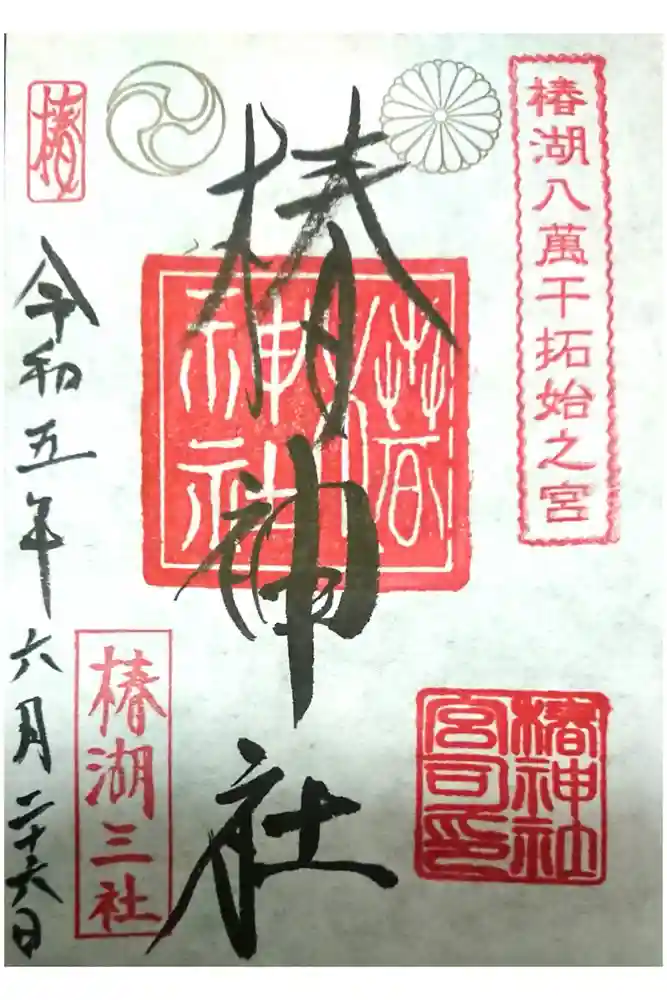 椿湖八萬干拓始之宮
椿神社
椿神社
椿神社
宮司印
椿
令和五年六月二十六日
椿湖三社